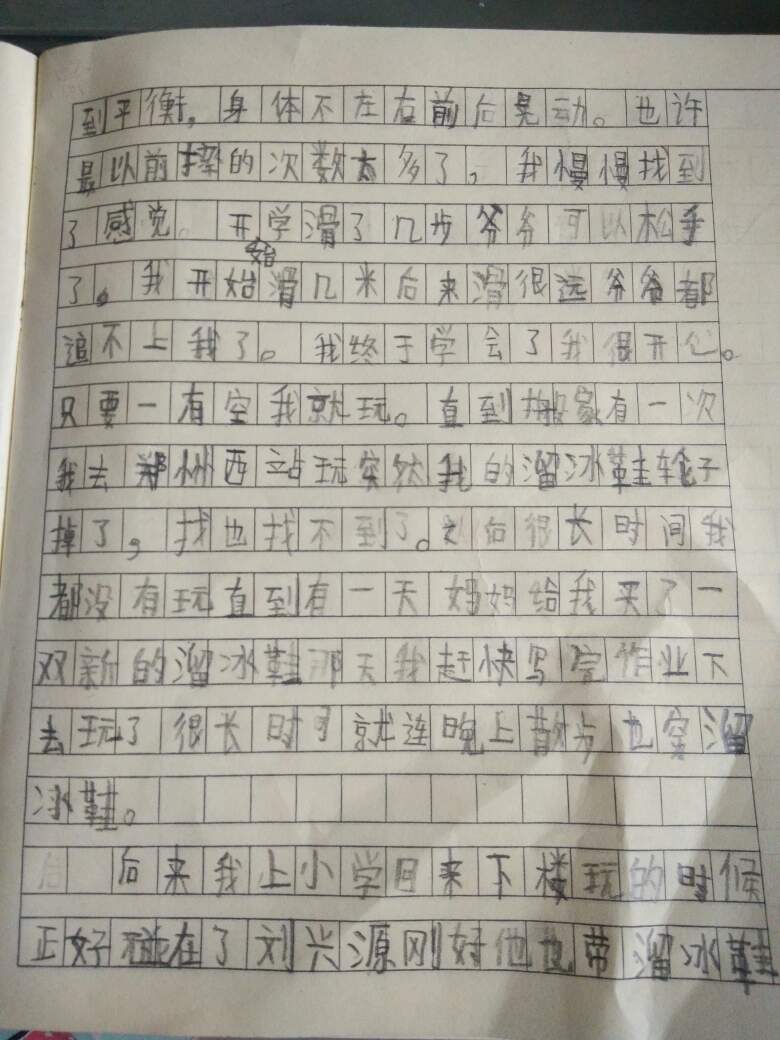 到平衡，身体不在右前后晃动。也许
最以前摔的次数太多了，我慢慢找到
了感觉。开始学滑了几步爷爷可以松手
了。我开始滑几米后来滑很远爷爷都
追不上我了。我终于学会了我很开心。
只要一有空我就玩。直到搬家有一次
我去郑州西站玩突然我的溜冰鞋轮子
掉了，找也找不到了。之后很长时间我
都没有玩直到有一天妈妈给我买了一
双新的溜冰鞋那天我赶快写完作业下
去玩了很长时间就连晚上散步也穿溜
冰鞋。
后来我上小学回来下楼玩的时候
正好碰在了刘兴源刚好他也带溜冰鞋